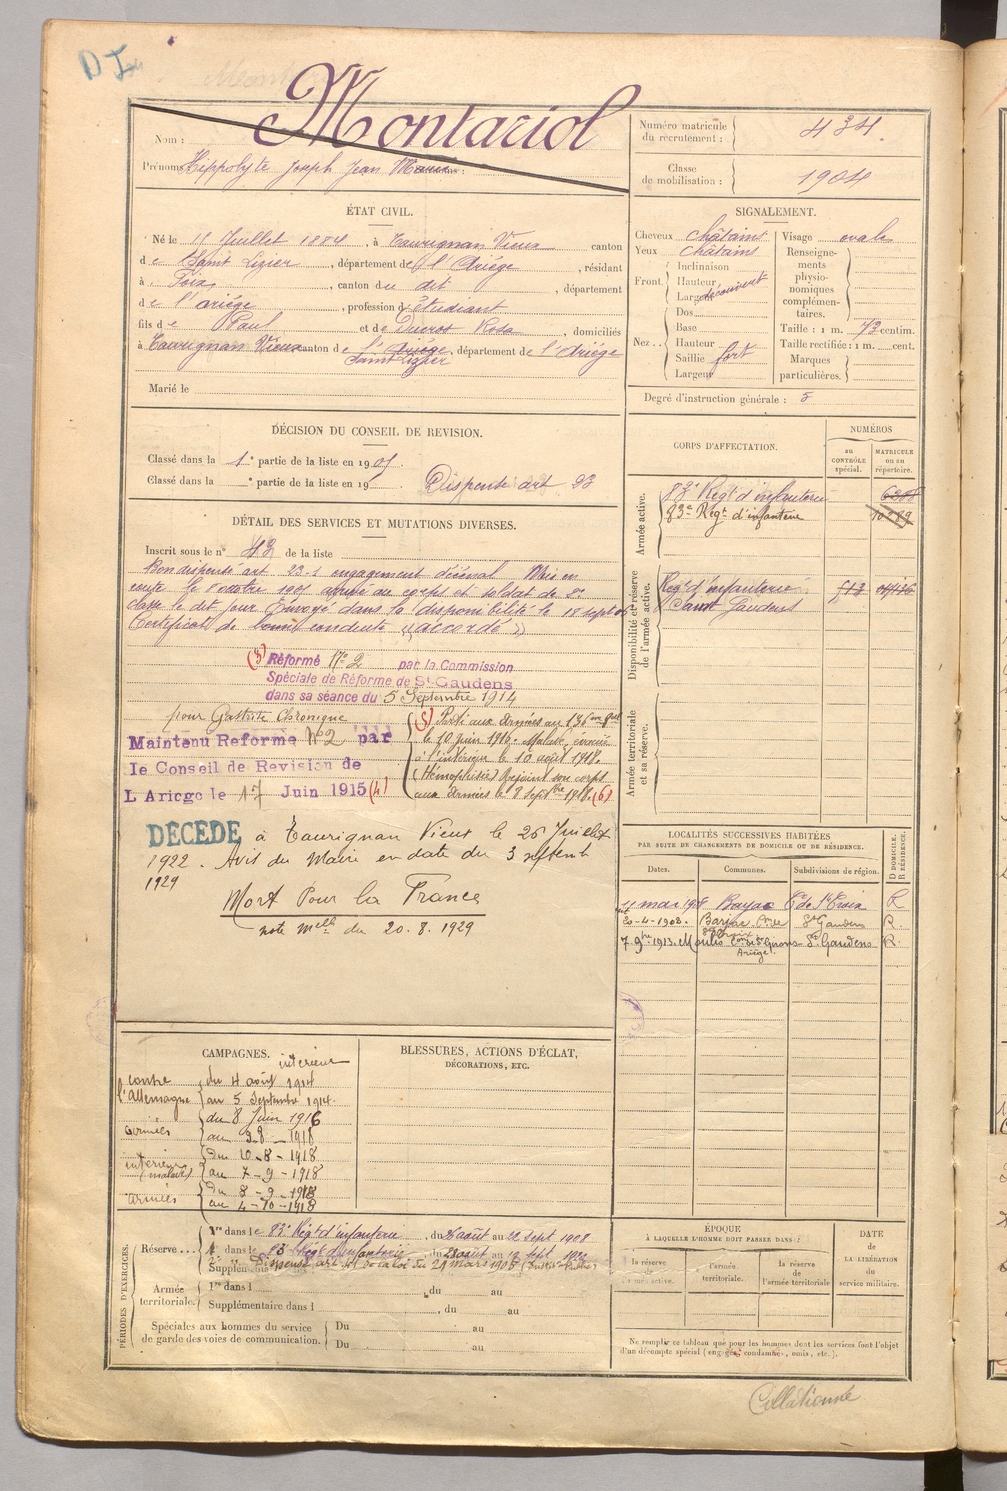 Montariol
Nom :
Prénoms : Hippolyte Joseph Jean
Numéro matricule du recrutement : 434.
Classe de mobilisation : 1904
ÉTAT CIVIL.
Né le 11 Juillet 1884, à Taurignan Vieux canton
de Saint Lizier, département de l'Ariége, résidant
à Foix, canton du dit, département
de l'ariége, profession d'Etudiant
fils de Paul et de Ducros Rosa, domiciliés
à Taurignan Vieux canton de l'Ariége, département de l'Ariége
Saint Lizier
Marié le
SIGNALEMENT.
Cheveux châtains
Yeux châtains
Front. Inclinaison
Hauteur
Larg découvert
Nez Dos
Base
Hauteur
Saillie fort
Largeur
Visage ovale
Renseignements physionomiques complémentaires.
Taille : 1 m. 73 centim.
Taille rectifiée : 1 m. cent.
Marques particulières.
Degré d'instruction générale : 5
DÉCISION DU CONSEIL DE REVISION.
Classé dans la 1e partie de la liste en 1905.
Classé dans la e partie de la liste en 19 Dispensé art 23
CORPS D'AFFECTATION.
NUMÉROS
au CONTRÔLE spécial.
MATRICULE ou au répertoire.
Armée active.
83e Régt d'infanterie
83e Régt d'infanterie
Disponibilité et réserve de l'armée active.
Régt d'infanterie
Saint Gaudens
Armée territoriale et sa réserve.
DÉTAIL DES SERVICES ET MUTATIONS DIVERSES.
Inscrit sous le n° 42 de la liste
Bon dispensé art 23-1 engagement décénal Mis en
route le octobre 1905 arrivé au corps et soldat de 2e
classe le dit jour Envoyé dans la disponibilité le 18 sept
Certificat de bonne conduite "accordé"
(3) Réformé N° 2 par la Commission
Spéciale de Réforme de St Gaudens
dans sa séance du 5 Septembre 1914
pour Gastrite Chronique
Maintenu Reforme N°2 par
le Conseil de Revision de
L Ariege le 17 Juin 1915 (4)
(5) Parti aux armées au 136
le 10 juin 1916. Malade, évacué
à l'intérieur le 10 août 1918.
(Hémophisie) Rejoint son corps
aux armées le 8 septbre 1918. (6)
DECEDE à Taurignan Vieux le 26 Juillet
1922. Avis du Maire en date du 3 septemb
1929
Mort Pour la France
note melle du 20.8.1929
LOCALITÉS SUCCESSIVES HABITÉES
PAR SUITE DE CHANGEMENTS DE DOMICILE OU DE RÉSIDENCE.
Dates. Communes. Subdivisions de région. D DOMICILE. R RÉSIDENCE.
11 mai 1908 Ste Croix R
20-4-1908. St Gaudens R.
7 9bre 1913. Moulis Con de St Girons St Gaudens R.
Ariège.
CAMPAGNES.
contre l'Allemagne
intérieur
du 4 août 1914
au 5 Septembre 1914.
armées
du 8 Juin 1916
au 9-8-1918
intérieur (malade)
du 10-8-1918
au 7-9-1918
armées
du 8-9-1918
au 4-10-1918
BLESSURES, ACTIONS D'ÉCLAT,
DÉCORATIONS, ETC.
PÉRIODES D'EXERCICES.
Réserve
1re dans le 83e Régt d'infanterie, du 26 août au 22 sept 1908
2e dans le 83e Régt d'infanterie, du 28 août au 13 sept
Supplém Dispensé art de la loi du 21 mars 1905
Armée territoriale.
1re dans l , du au
Supplémentaire dans l , du au
Spéciales aux hommes du service de garde des voies de communication.
Du au
Du au
ÉPOQUE
À LAQUELLE L'HOMME DOIT PASSER DANS :
la réserve de l'armée active.
l'armée territoriale.
la réserve de l'armée territoriale
DATE de LA LIBÉRATION du service militaire.
Ne remplir ce tableau que pour les hommes dont les services font l'objet
d'un décompte spécial (engagés, condamnés, omis, etc.).
Collationné